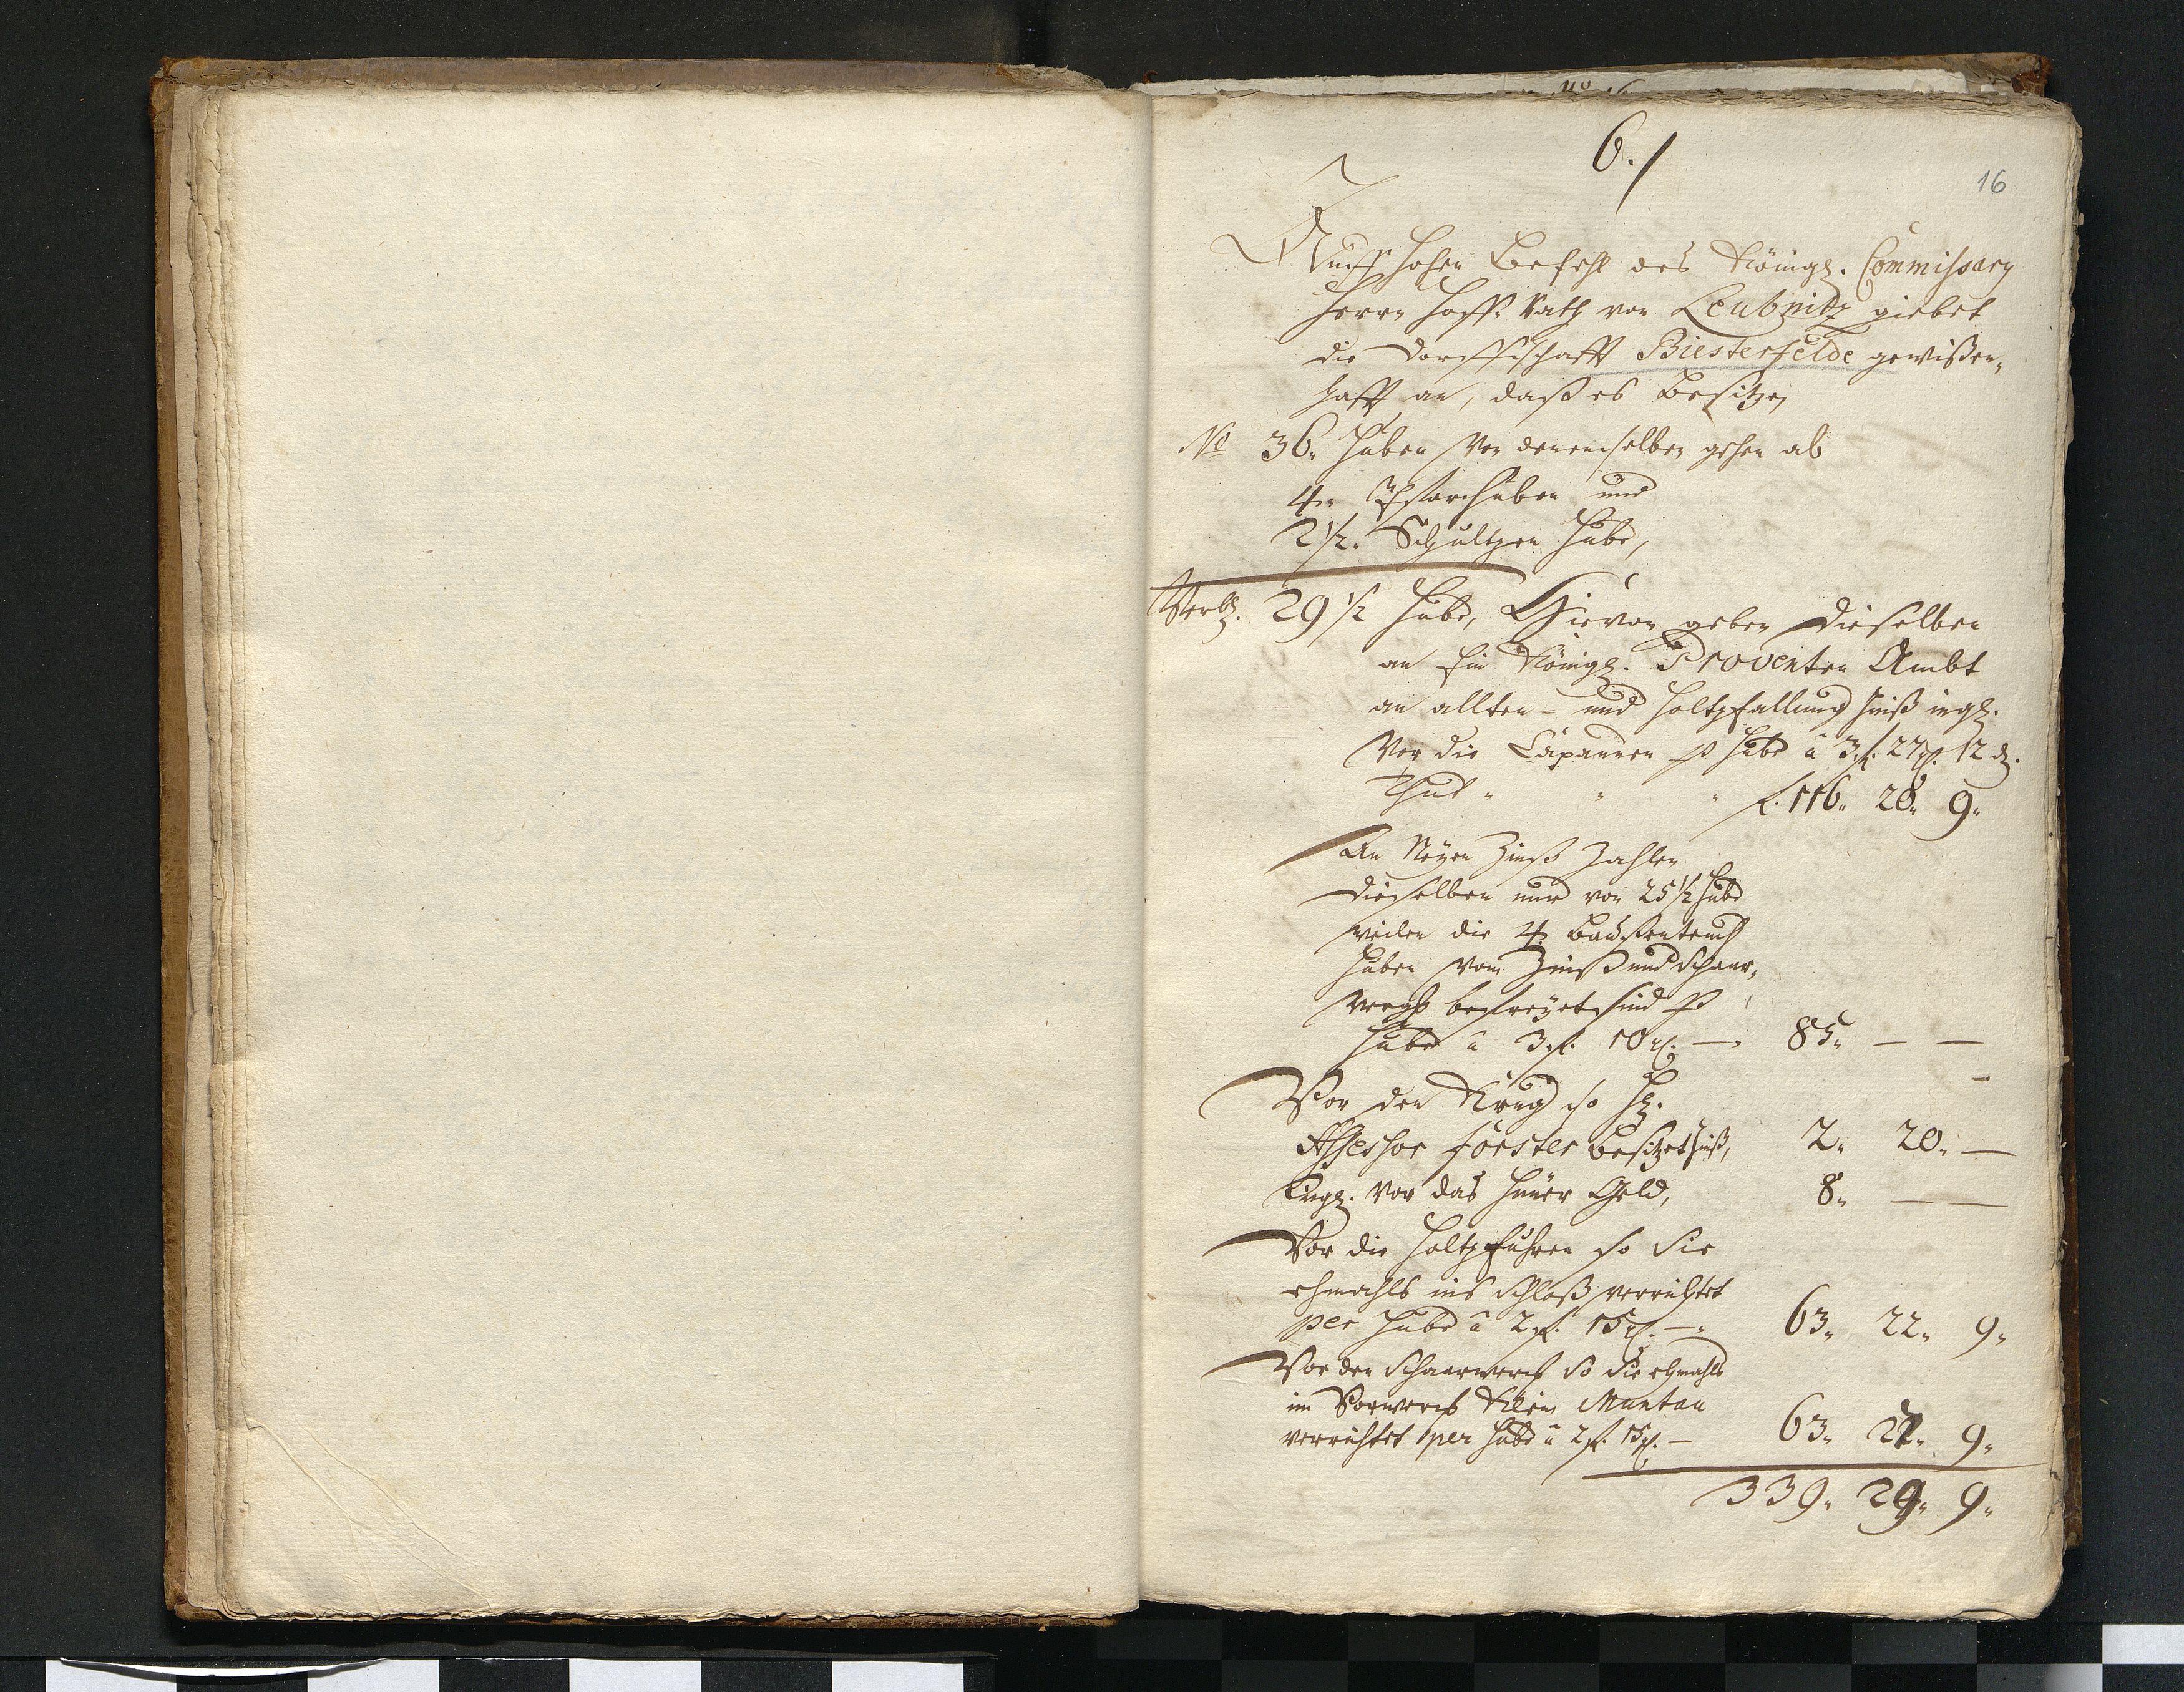 6./
16
Auff hohen Befehl des Königl. Commissary
Herrn Hoff Rath von Leubnitz giebet
die Dorffschafft Biesterfelde gewißen„
hafft an, daß es Besitze,
No 36„ Huben Von denenselben gehen ab
4„ Pfarrhuben und
2½„ Schultzen Hube,
Verbl. 29½ Hube, Hievon geben Dieselben
an Ein Königl. Proventen Ambt
an allten- und Holtzfallung Zinß ingl.
Vor die Capaunen p Hube â 3 f. 27 gl. 12 d.
Thut „ „ „ f. 116„ 28„ 9„
An Neyen Zinß Zahlen
Dieselben nur von 25½ Hube
weilen die 4
Huben vom Zinß und Schaar„
werck befreyet sind p
Hube â 3 f. 10 gl. — 85„ — —
Vor den Krug so H.
Assessor Förster besitzet Zinß, 2„ 20„ —
Ingl. vor das Geld, 8„ — —
Vor die Holtzfuhren so Sie
ehmahls ins Schloß verrichtet
per Hube â 2 f. 15 gl. — 63„ 22„ 9„
Vor den Schaarwerck so Sie ehmahls
im Vorwerck Klein Muntau
verrichtet per Hube â 2 f. 15 gl. — 63„ 22„ 9„
339„ 29„ 9„